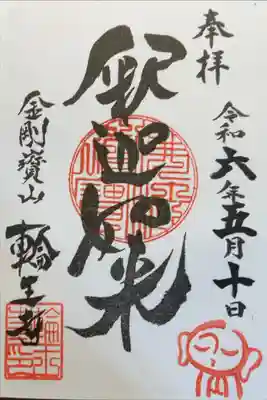 奉拝
令和六年五月十日
釈迦如来
金剛寳山
輪王寺